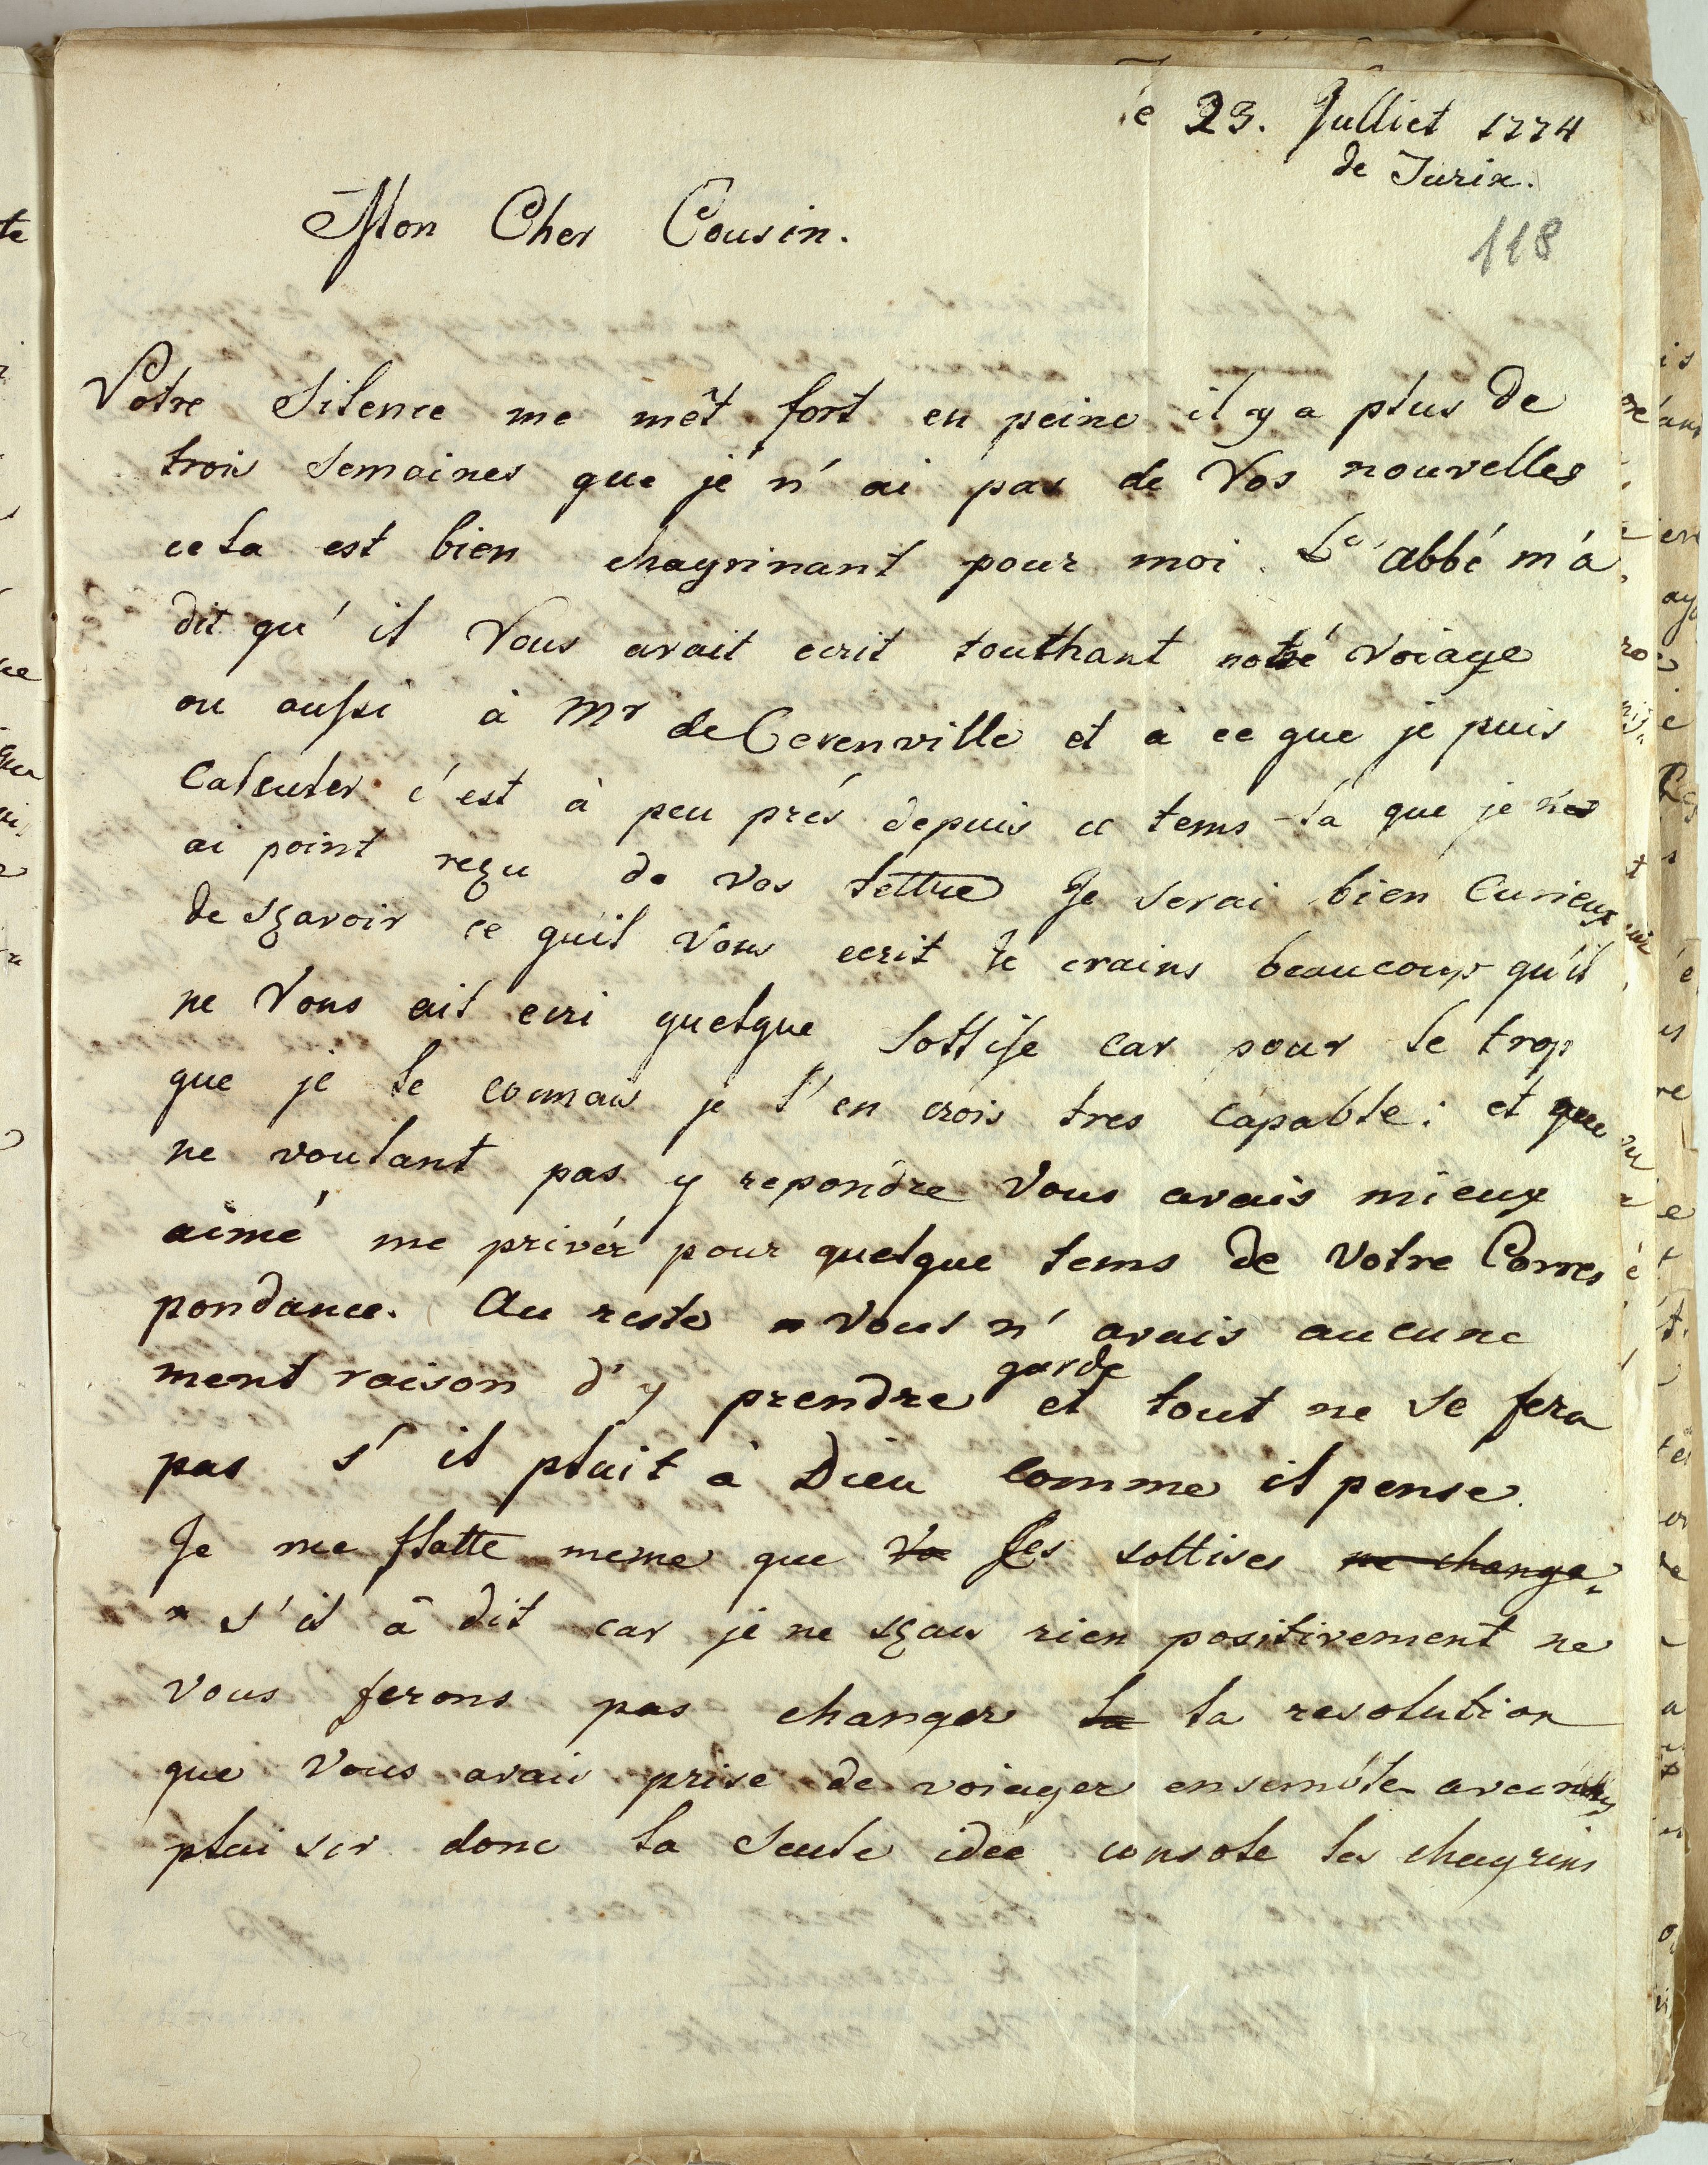 le 23. Julliet 1774
de Turin.
118
Mon Cher Cousin.
Votre Silence me mêt fort en peine il y a plus de
trois Semaines que je n'ai pas de Vos nouvelles
cela est bien chagrinant pour moi. L'abbé m'a
dit qu'il Vous avait ecrit touthant notre voiage
ou aussi à Mr de Cerenville et à ce que je puis
Calculer c'est à peu prés depuis ce tems-la que je n'
ai point reçu de vos lettre Je serai bien Curieux
de sçavoir ce qu'il vous ecrit Je crains beaucoup qu'il
ne Vous ait ecri quelque sottise car pour le trop
que je le connais je l'en crois tres capable: et que
ne voulant pas y repondre Vous avais mieux
aimé me privér pour quelque tems de Votre Corres
pondance. Au reste Vous n'avais aucune
ment raison d'y prendre garde et tout ne se fera
pas s'il plait à Dieu comme il pense.
Je me flatte meme que Va Ses sottises ne change-
s'il â dit car je ne sçais rien positivement ne
vous ferons pas changer la la resolution
que Vous avais prise de voiager ensemble avec nous
plaisir donc la Seule idée console les chagrins